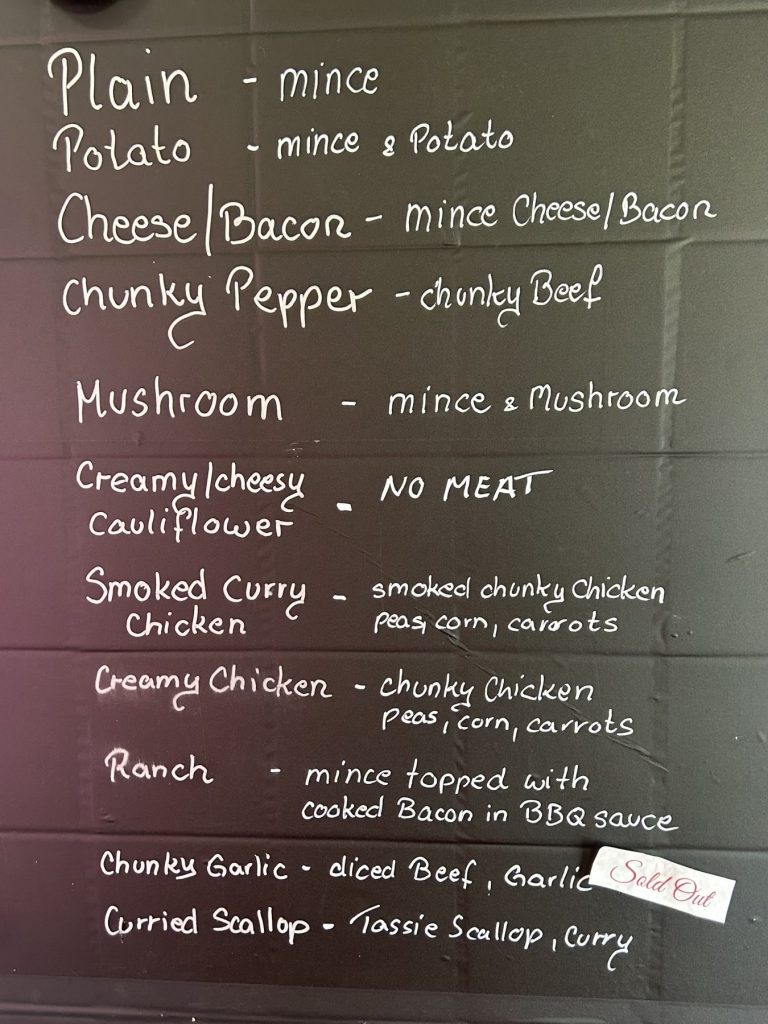 Plain - mince
Potato - mince & Potato
Cheese/Bacon - mince Cheese/Bacon
Chunky Pepper - chunky Beef
Mushroom - mince & Mushroom
Creamy/cheesy - NO MEAT
Cauliflower
Smoked Curry - smoked chunky Chicken
Chicken peas, corn, carrots
Creamy Chicken - chunky Chicken
peas, corn, carrots
Ranch - mince topped with
cooked Bacon in BBQ sauce
Chunky Garlic - diced Beef, Garlic Sold Out
Curried Scallop - Tassie Scallop, Curry